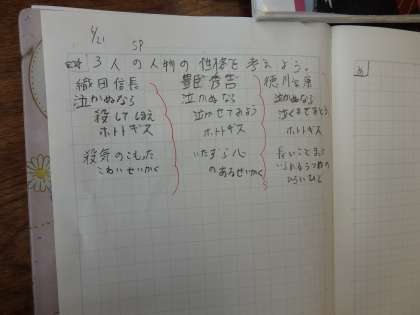 6/21
SP
3人の人物の性格を考えよう。
織田信長
泣かぬなら
殺してしまえ
ホトトギス
殺気のこもった
こわいせいかく
豊臣秀吉
泣かぬなら
泣かせてみよう
ホトトギス
いたずら心
のあるせいかく
徳川家康
泣かぬなら
泣くまで待とう
ホトトギス
長いこと待って
いられる
ひろいひと